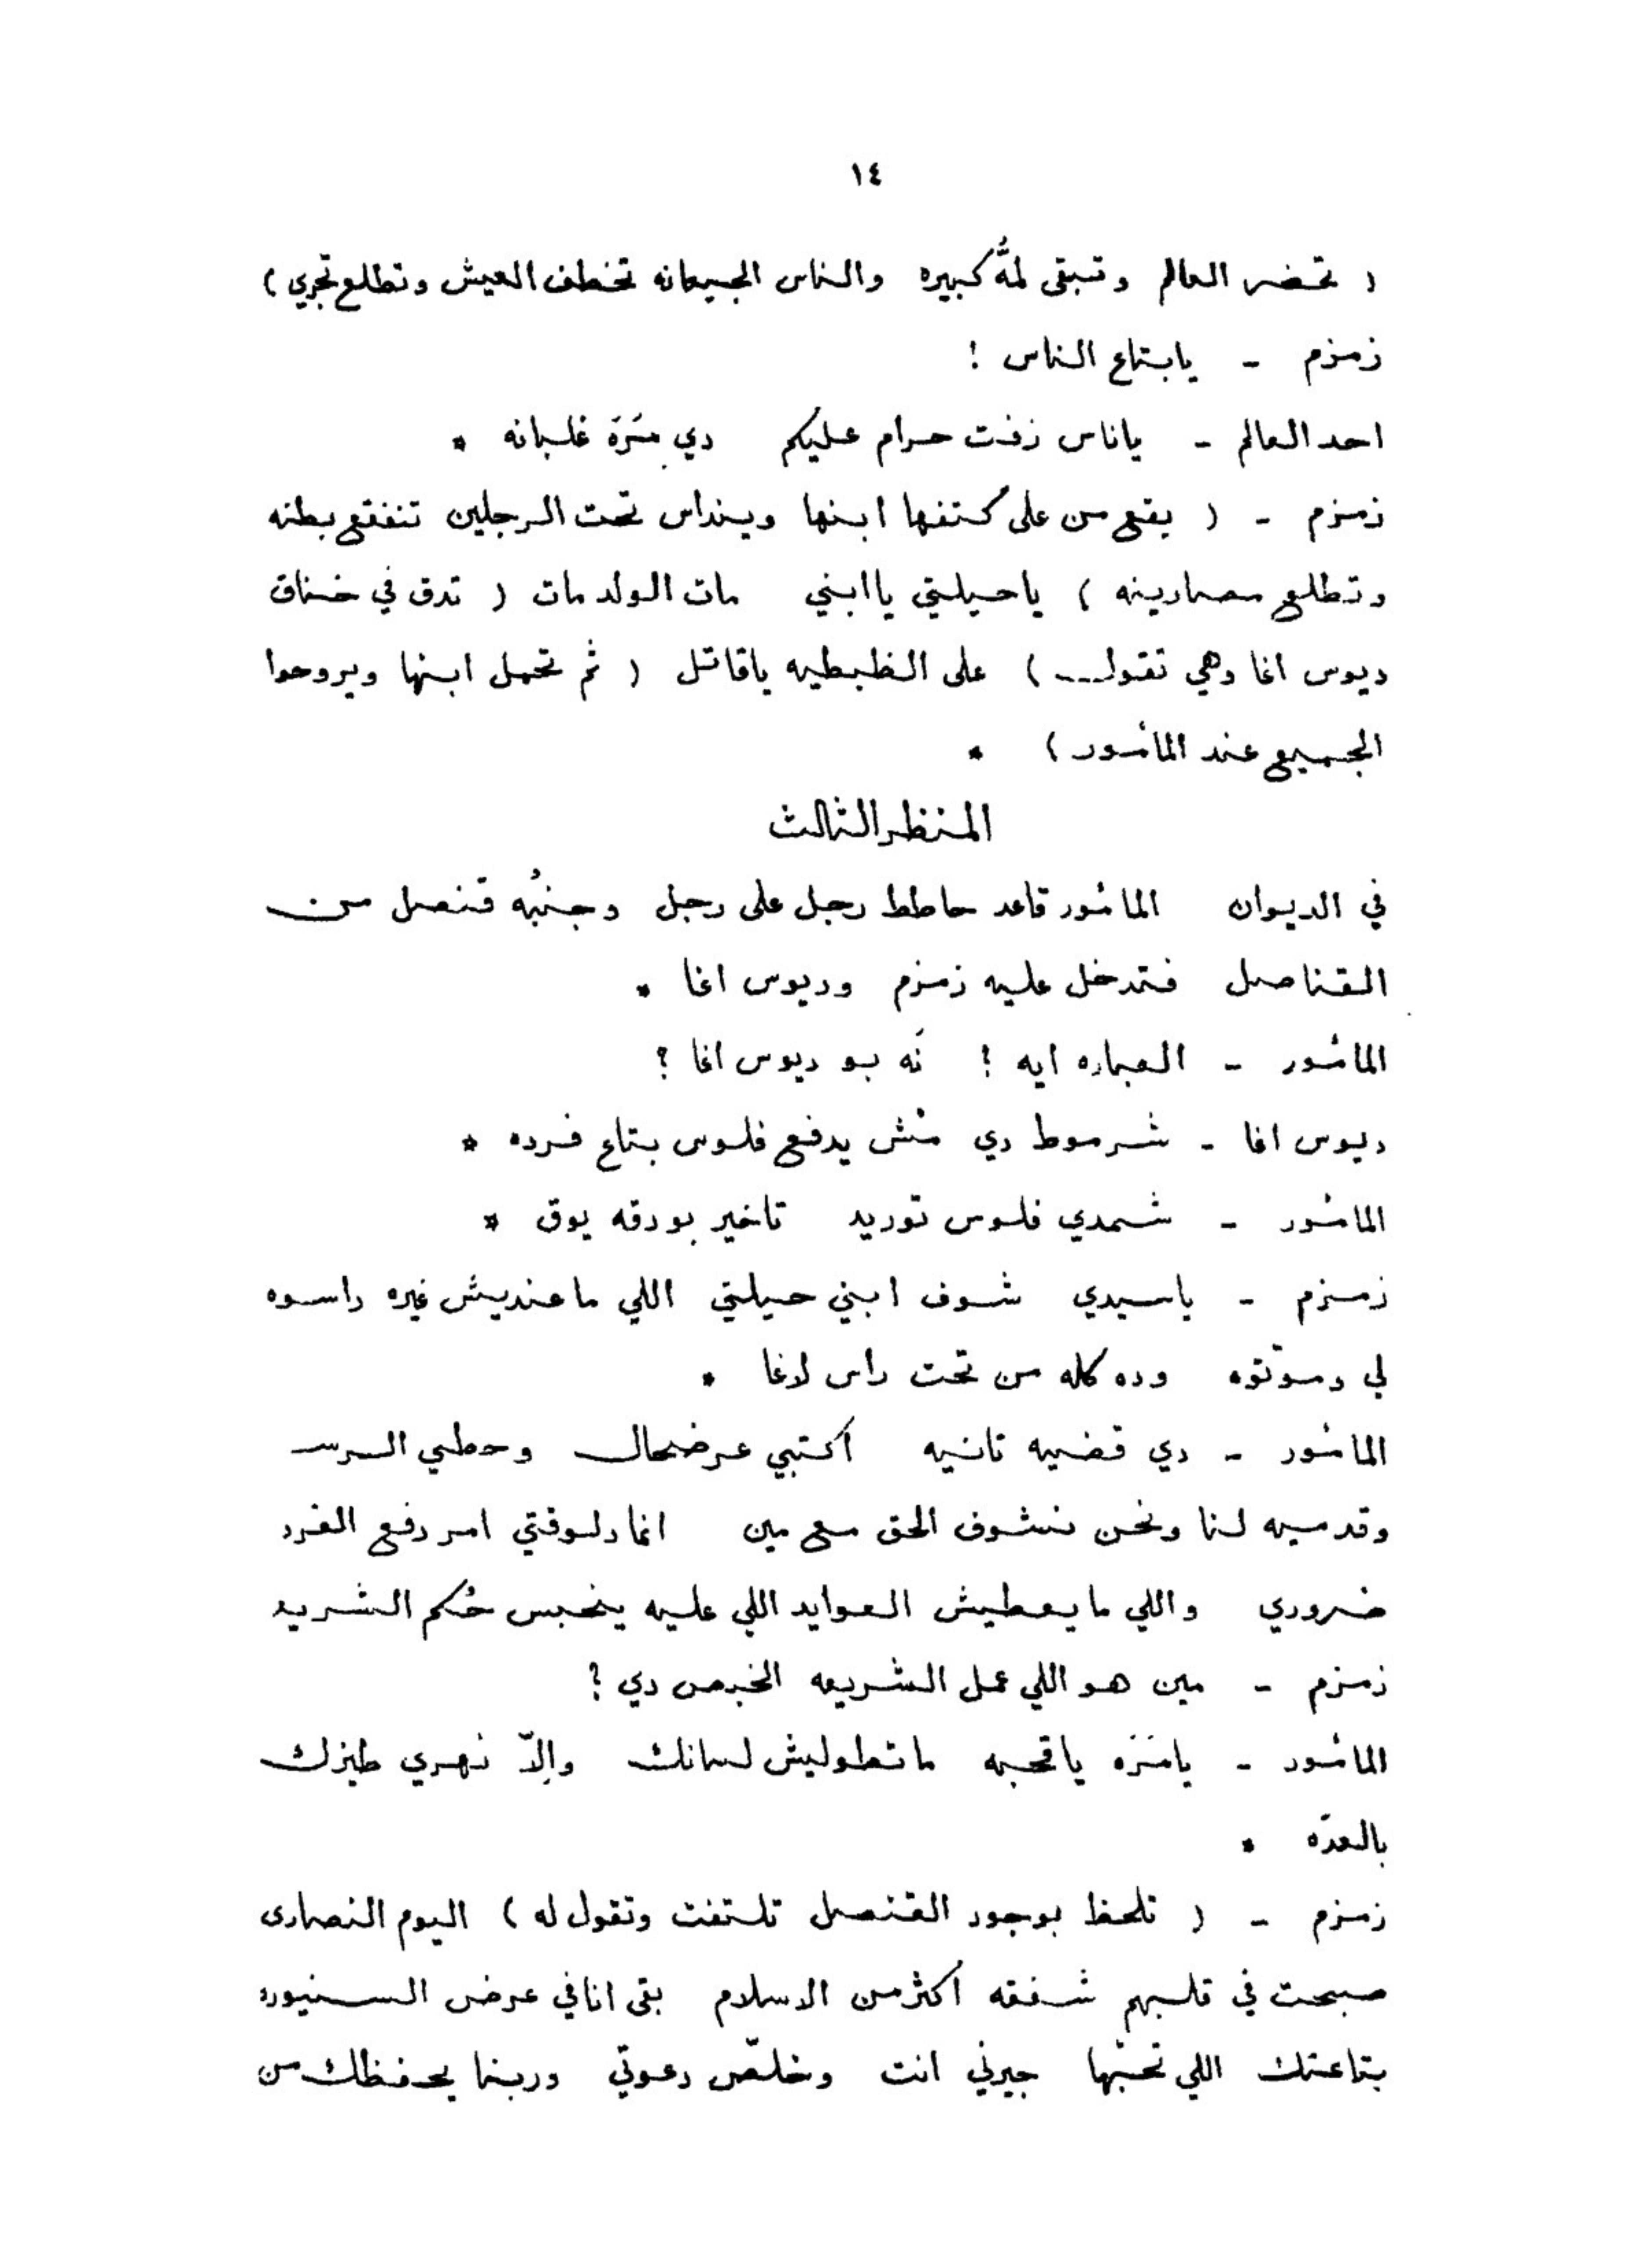 ١٤
( تحضر العالم وتبقى لمّه كبيره والناس الجيعانه تخطف العيش وتطلع تجري )
زمزم - يابتاع الناس !
احد العالم - ياناس زفت حرام عليكم دي مَرَة غلبانه *
زمزم - ( يقع من على كتفها ابنها وينداس تحت الرجلين تنفتع بطنه
وتطلع مصارينه ) ياحيلتي ياابني مات الولد مات ( تدق في خناق
ديوس اغا وهي تقول... ) على الظبطيه ياقاتل ( ثم تحمل ابنها ويروحوا
الجميع عند المأمور ) *
المنظر الثالث
في الديوان المأمور قاعد حاطط رجل على رجل وجنبُه قنصل من
القناصل فتدخل عليه زمزم وديوس اغا *
المأمور - العباره ايه ! نَه بو ديوس اغا ؟
ديوس اغا - شرموط دي مُش يدفع فلوس بتاع فرده *
المأمور - شمدي فلوس توريد تاخير بورقه يوق *
زمزم - ياسيدي شوف ابني حيلتي اللي ماعنديش غيره داسوه
لي وموّتوه وده كله من تحت راس لاغا *
المأمور - دي قضيه تانيه اكتبي عرضحال وحطي الرسـ
وقدميه لنا ونحن نشوف الحق مع مين انما دلوقتي امر دفع الفرد
ضروري واللي مايعطيش العوايد اللي عليه ينحبس حُكم الشريعـ
زمزم - مين هو اللي عمل الشريعه الخبص دي ؟
المأمور - يامَرَه ياقحبه ماتطوليش لسانك وإلاّ نهري طيزك
بالعدّه *
زمزم - ( تلحظ بوجود القنصل تلتفت وتقول له ) اليوم النصارى
صبحت في قلبهم شفقه أكثر من الاسلام بقى انا في عرض السنيوره
بتاعتك اللي تحبّها جيرني انت وخلّص دعوتي وربنا يحفظلك من